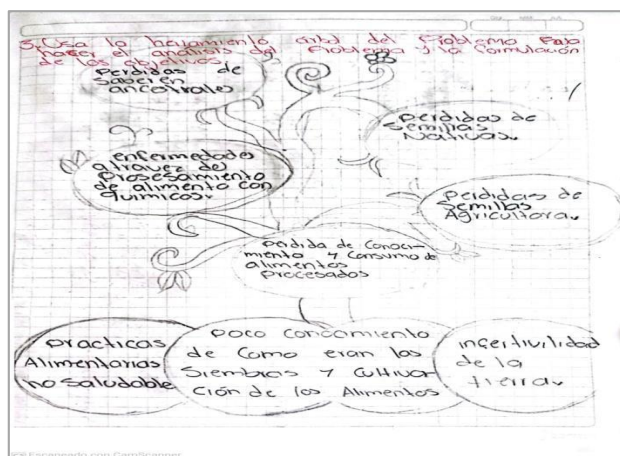 3. Usa la herramienta arbol del Problema Para
hacer el analisis del Problema y la formulación
de los objetivos
Perdidas de
Saberen
ancestrales
Perdidas de
Semillas
Nativas.
enfermedades
atravez del
Prosesamiento
de alimento con
quimicos.
Perdidas de
Semillas
Agricultora.
Perdida de Conoci-
miento y Consumo de
alimentos
Procesados
Practicas
Alimentarias
no Saludable
Poco Conocimiento
de Como eran las
Siembras y Cultivar
Ción de los Alimentos
infertivilidad
de la
tierra.
Escaneado con CamScanner